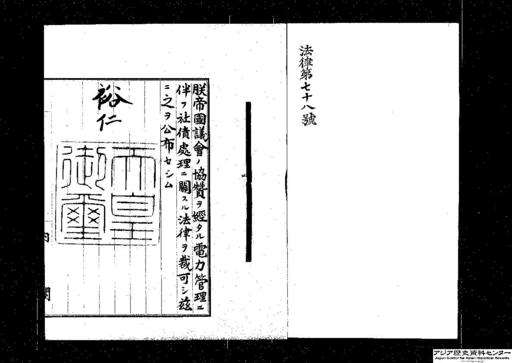 法律第七十八號
朕帝國議會ノ協贊ヲ經タル電力管理ニ
伴フ社債處理ニ關スル法律ヲ裁可シ茲
ニ之ヲ公布セシム
裕仁
天皇
御璽
内閣
アジア歴史資料センター
Japan Center for Asian Historical Records